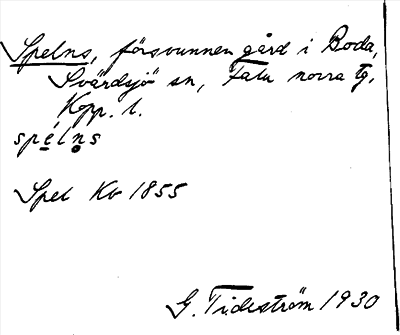 Spelns, försvunnen gård i Boda,
Svärdsjö sn, Falu norra tg,
Kopp. l.
spélṇs
Spel Kb 1855
G. Tideström 1930